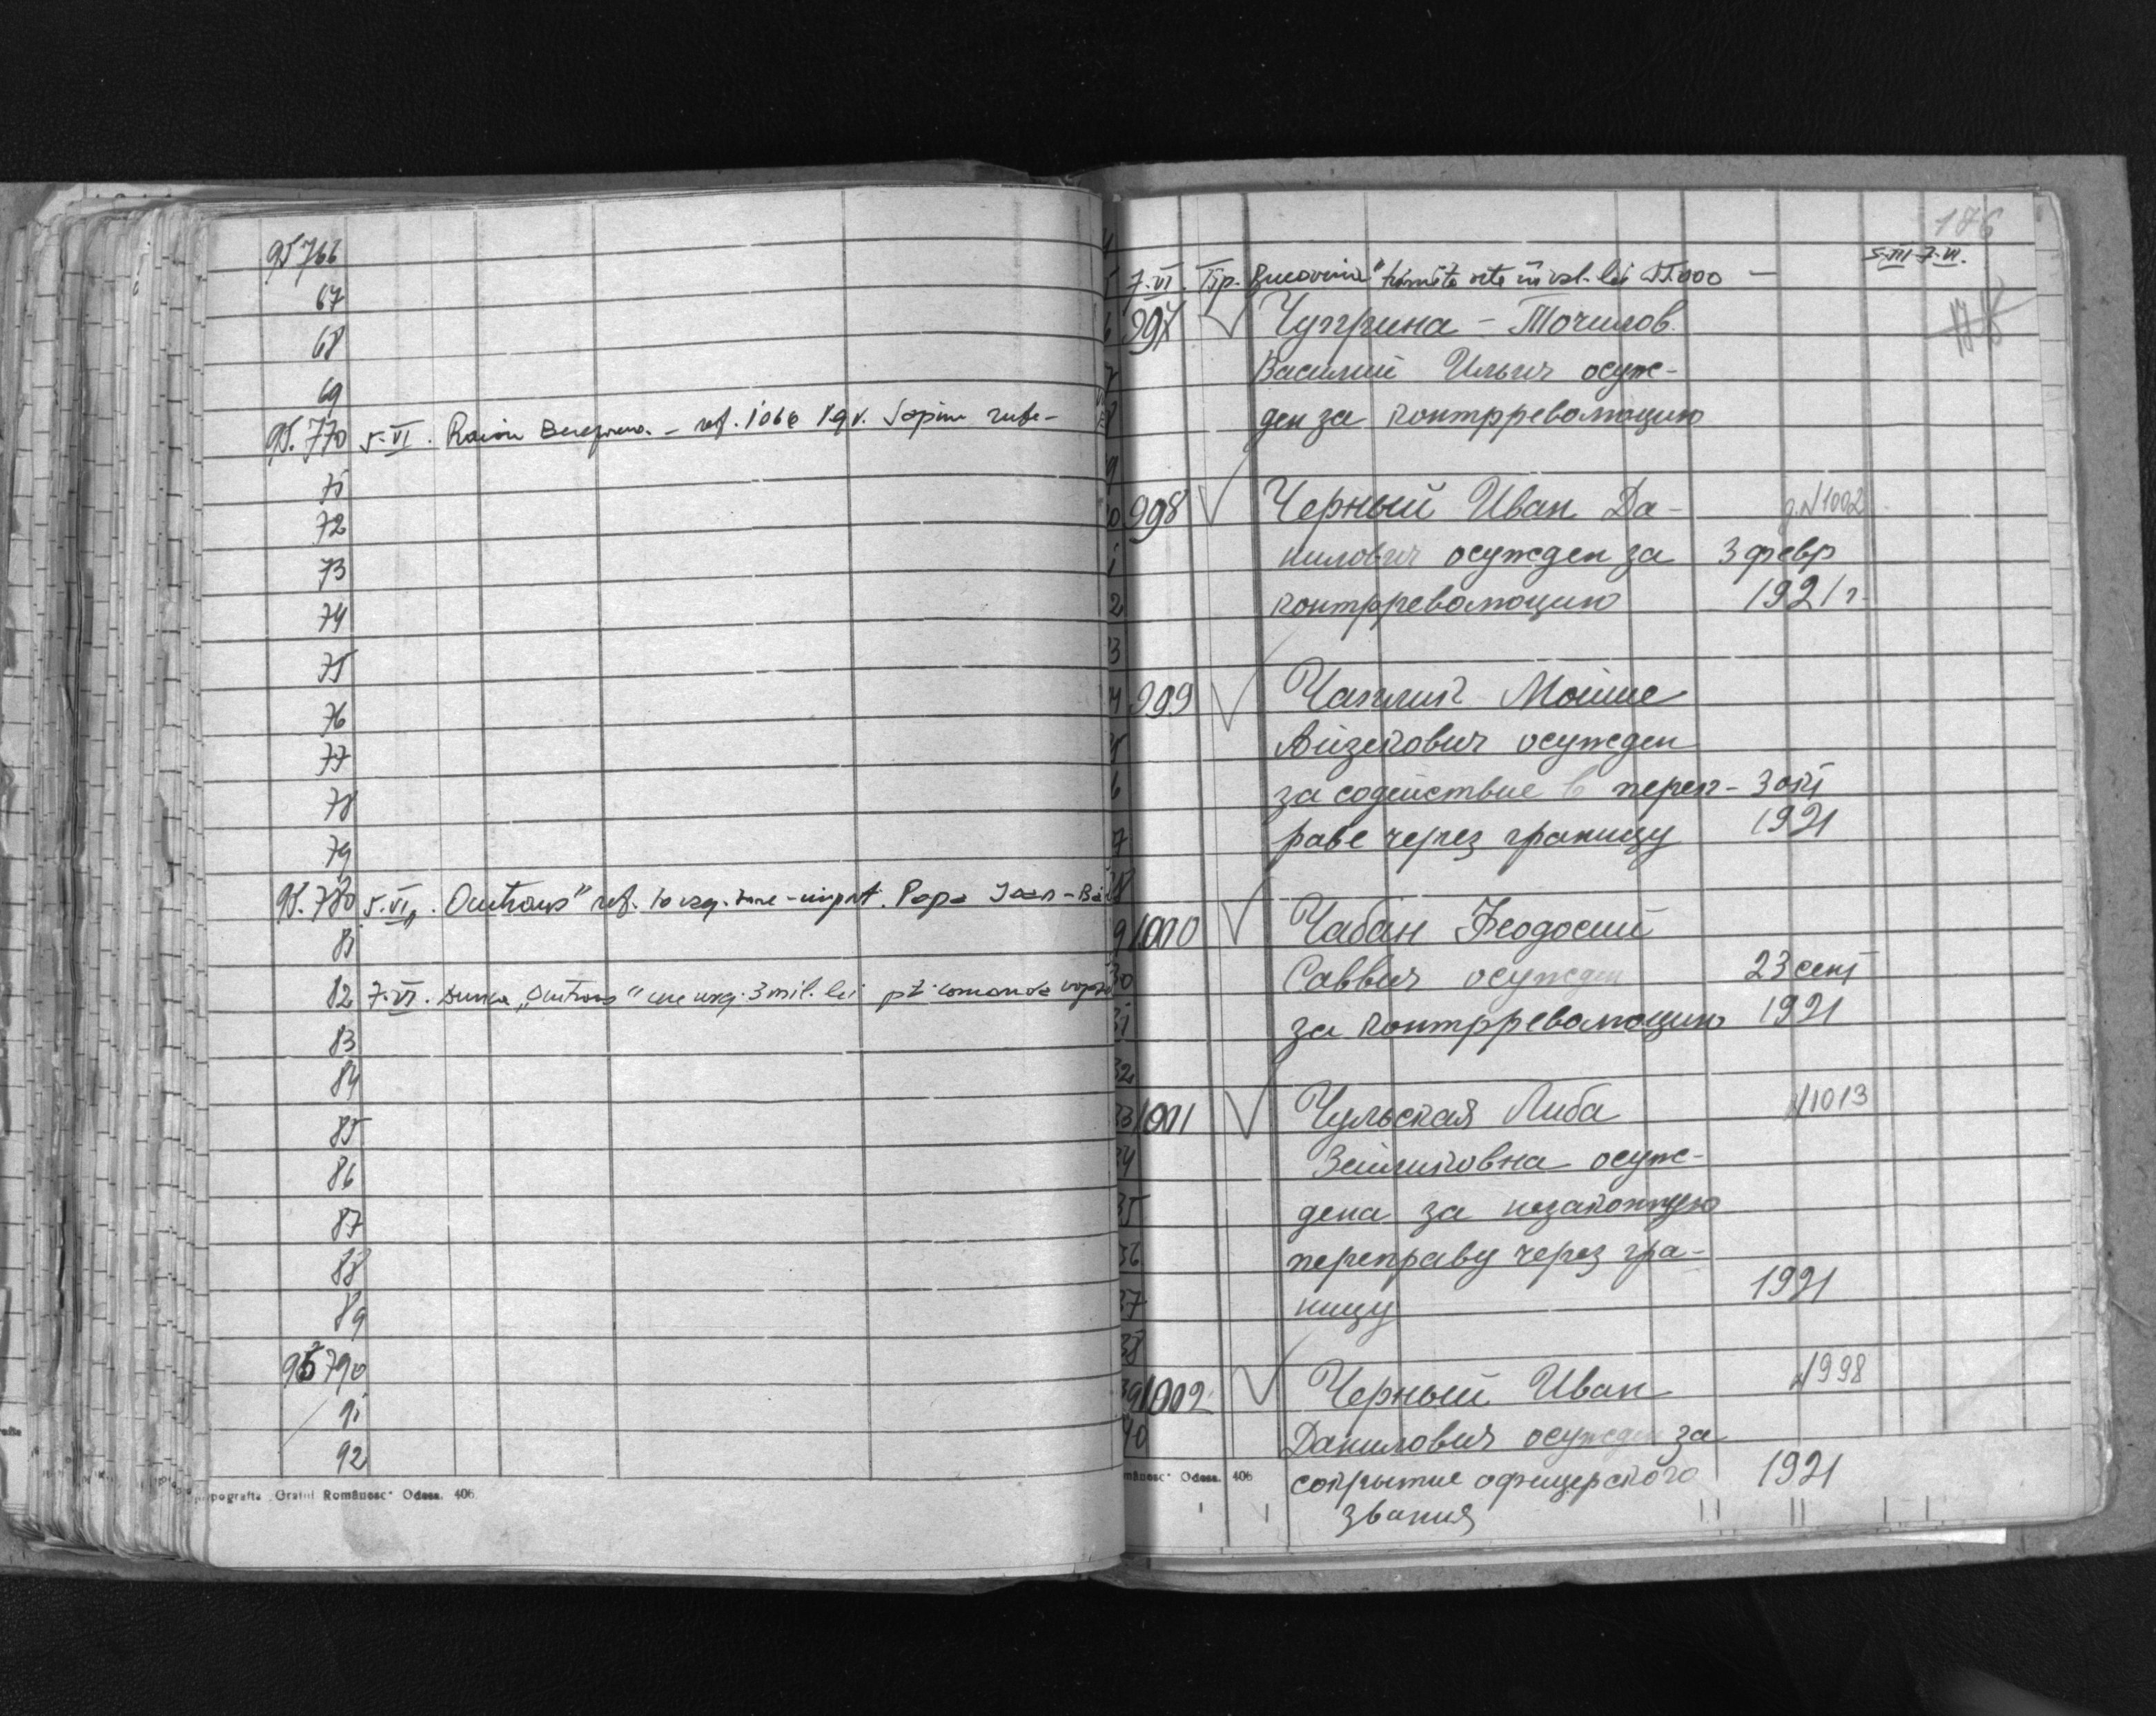 95766
67
68
69
95.770 5-VI. Raion Berezovca - ref. 1066 vgv.
71
72
73
74
75
76
77
78
79
95.780 5.VI. ref. Popa Ioan-
81
82 7-VI. 3 mil. lei pt. comanda
83
84
85
86
87
88
89
95790
91
92
Tipografia „Graiul Românesc“ Odesa. 406.
176
5-III-7-VI.
7-VI. Tip. „Bucovina“ trimite lei 55.000 —
997 Чуприна - Точилов.
Василий Ильич осуж-
ден за контрреволюцию
998 Черный Иван Да- д.№1002
нилович осужден за 3 февр
контрреволюцию 1921 г.
999 Чаплик Мойше
Айзекович осужден
за содействие в переп- 3 окт
раве через границу 1921
1000 Чабан Феодосий
Саввич осужден 23 сент
за контрреволюцию 1921
1001 Чульская Либа №1013
Зейликовна осуж-
дена за незаконную
переправу через гра-
ницу 1921
1002 Черный Иван №998
Данилович осужден за
сокрытие офицерского 1921
звания
mânesc“ Odesa. 406